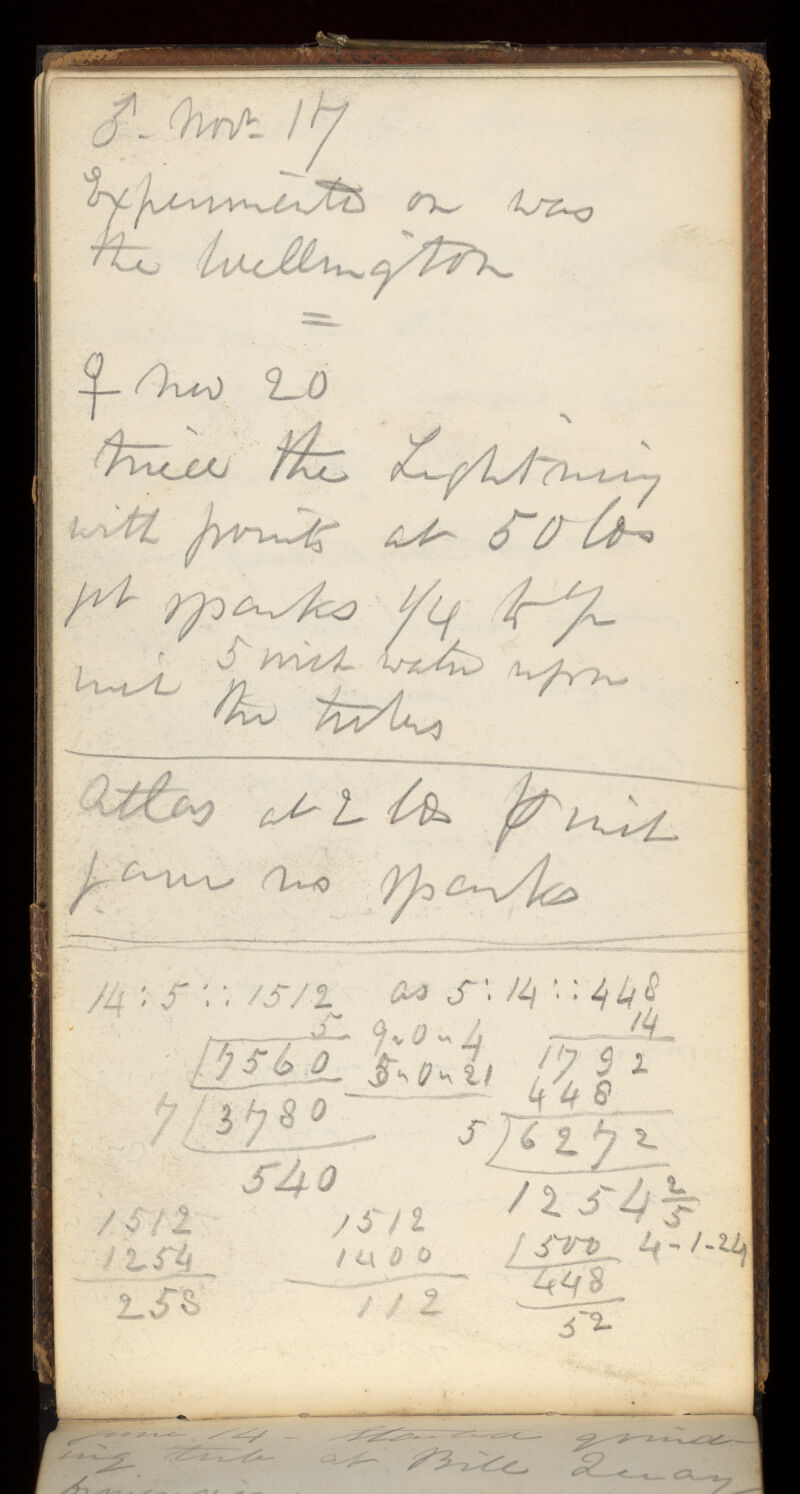 ♂ - Novr 17
Experiments on was
the Wellington
=
♀ Nov 20
tried the Lightning
with points at 50 lbs
got sparks 1/4 to 1/2
inch 5 inch water upon
the tubes
Atlas at 2 lbs inch
gave no sparks
14 : 5 :: 1512 as 5 : 14 :: 448
5 9 " 0 " 4 14
7560 5 " 0 " 21 1792
448
7 / 3780 5 / 6272
540 1254 2/5
1512 1512 1500 4 - 1 - 24
1254 1400 448
258 112 52
June 14 - Started grind-
ing tube at Bill Quay